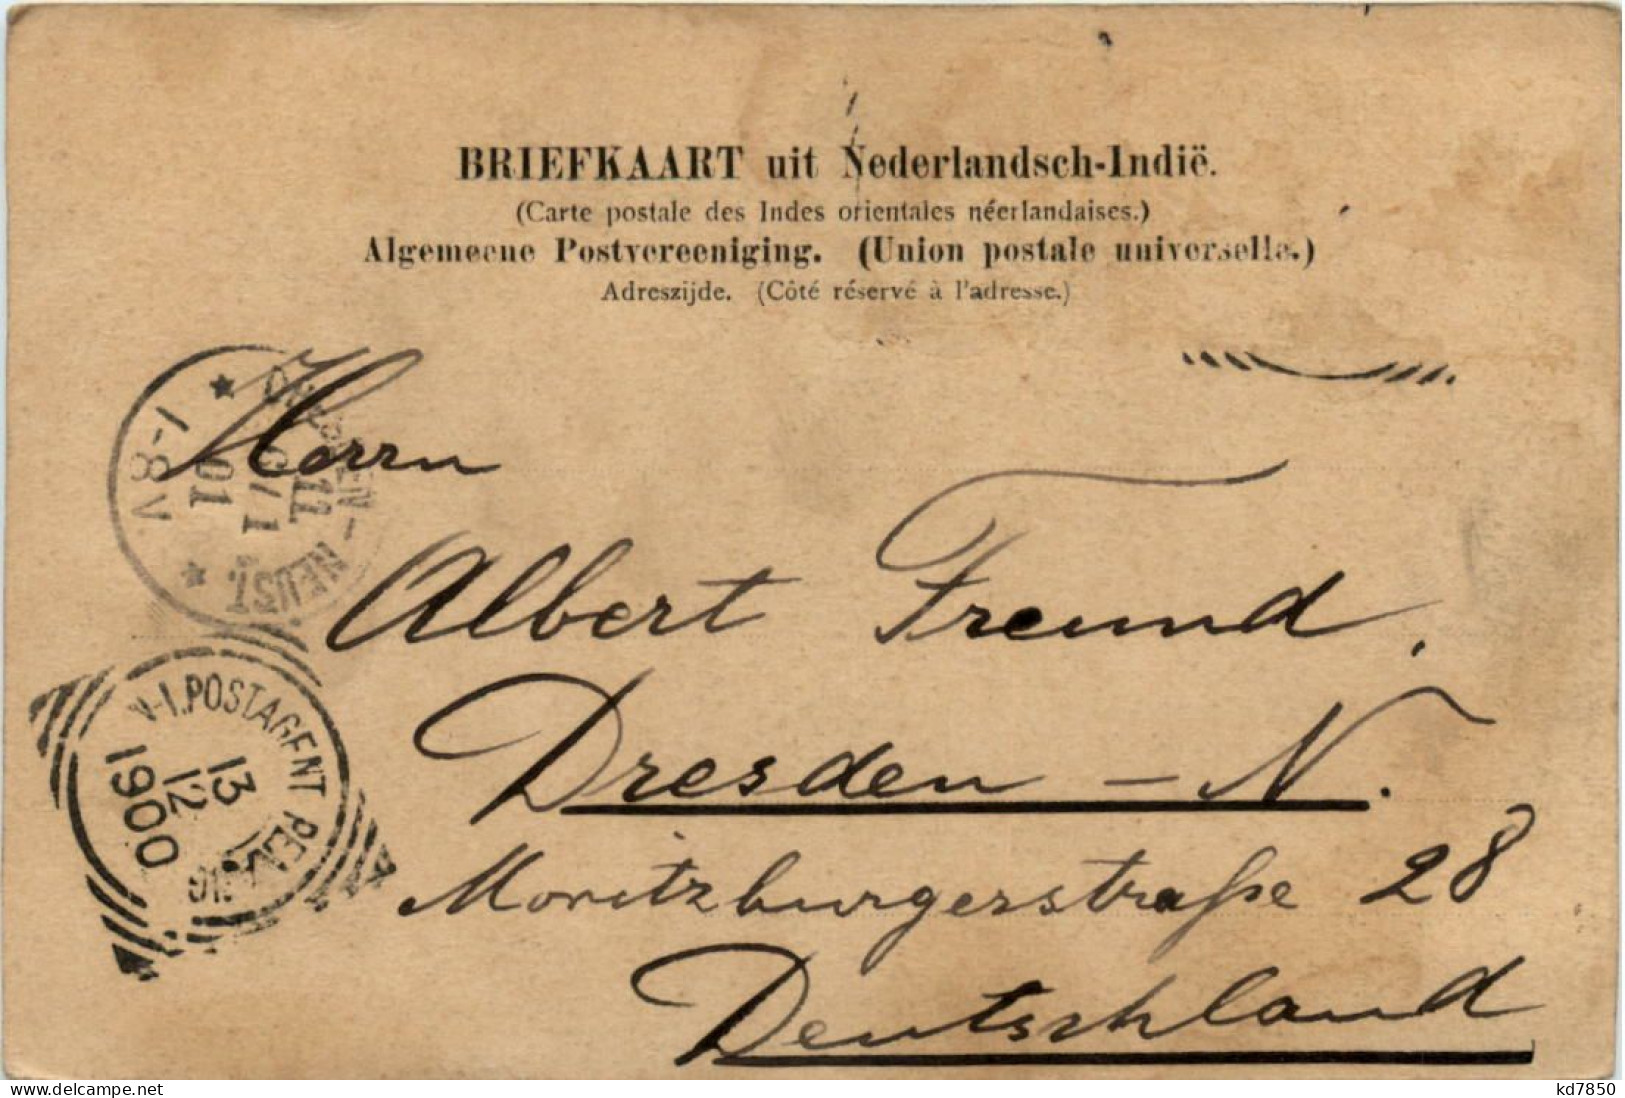 BRIEFKAART uit Nederlandsch-Indië.
(Carte postale des Indes orientales néerlandaises.)
Algemeene Postvereeniging. (Union postale universelle.)
Adreszijde. (Côté réservé à l'adresse.)
Herrn
Albert Freund.
Dresden - N.
Moritzburgerstraße 28
Deutschland
DRESDEN-NEUST.
11
1
01
7-8V
N-I.POSTAGENT PENANG
13
12
1900
www.delcampe.net
kd7850